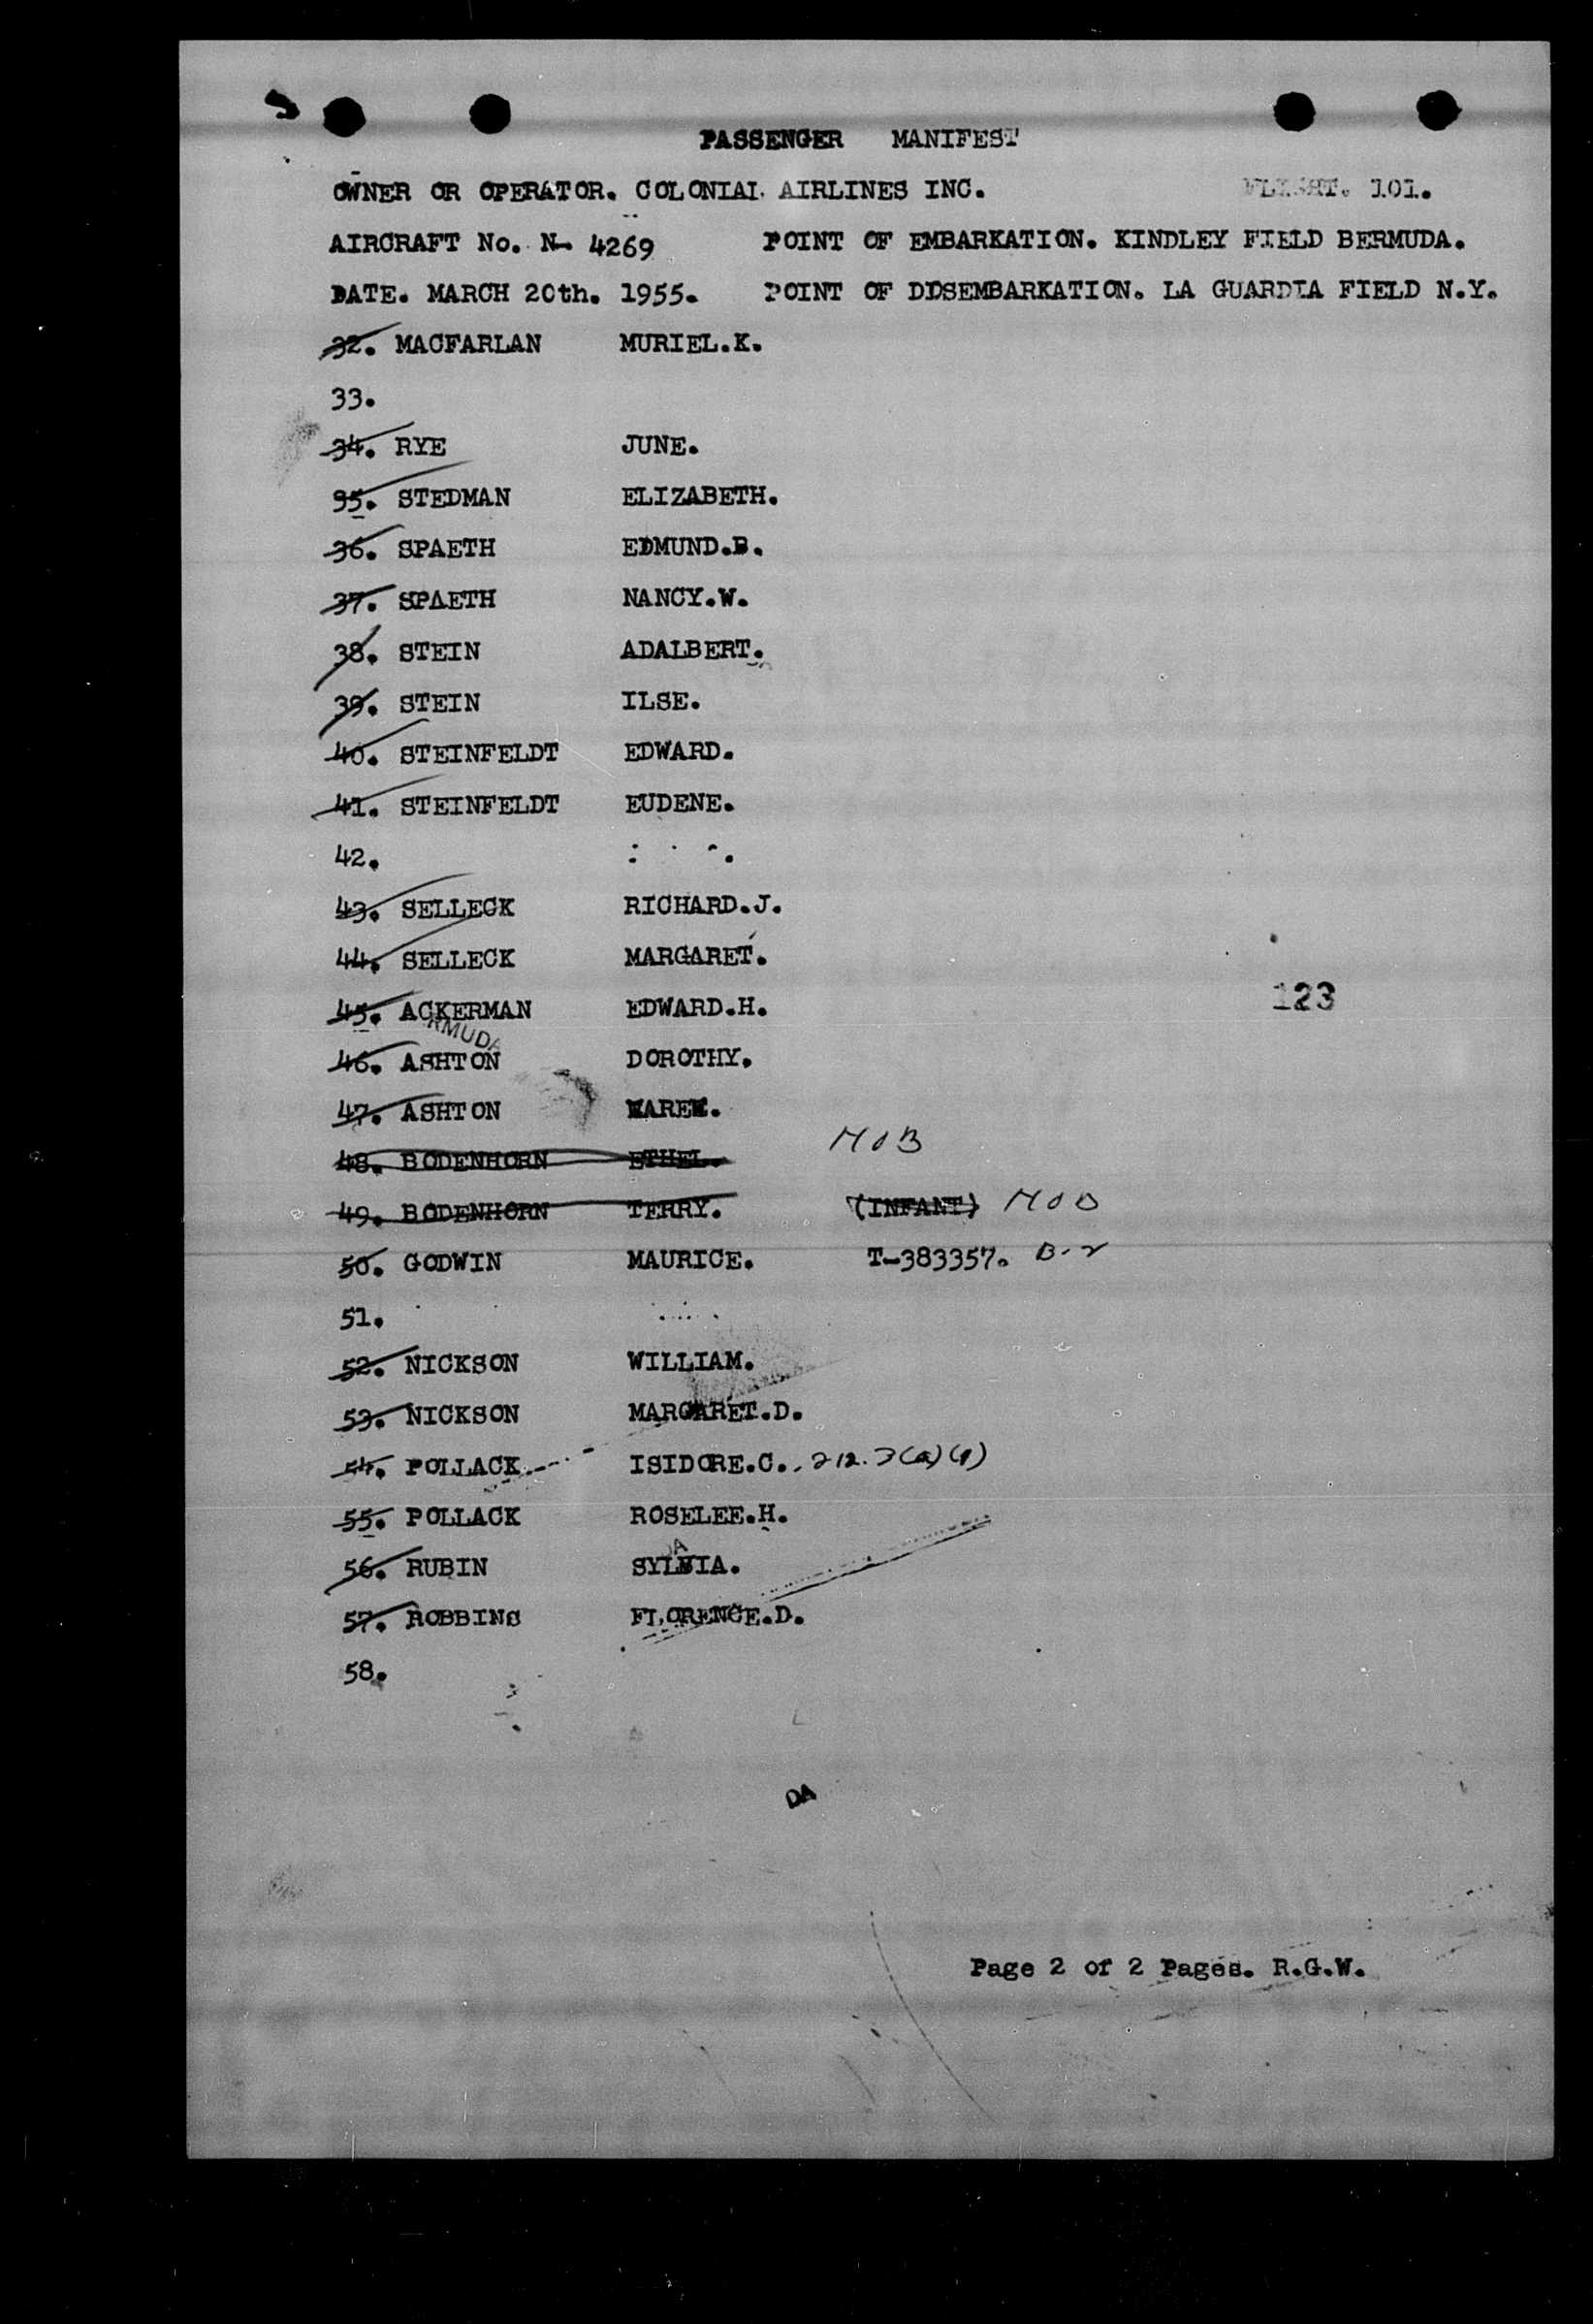 PASSENGER MANIFEST
OWNER OR OPERATOR. COLONIAL AIRLINES INC. FLIGHT. 101.
AIRCRAFT No. N- 4269 POINT OF EMBARKATION. KINDLEY FIELD BERMUDA.
DATE. MARCH 20th. 1955. POINT OF DISEMBARKATION. LA GUARDIA FIELD N.Y.
32. MACFARLAN MURIEL.K.
33.
34. RYE JUNE.
35. STEDMAN ELIZABETH.
36. SPAETH EDMUND.B.
37. SPAETH NANCY.W.
38. STEIN ADALBERT.
39. STEIN ILSE.
40. STEINFELDT EDWARD.
41. STEINFELDT EUDENE.
42.
43. SELLECK RICHARD.J.
44. SELLECK MARGARET.
123
45. ACKERMAN EDWARD.H.
RMUDA
46. ASHTON DOROTHY.
47. ASHTON
48. BODENHORN ETHEL. NOB
49. BODENHORN TERRY. (INFANT) NOB
50. GODWIN MAURICE. T-383357. B-2
51.
52. NICKSON WILLIAM.
53. NICKSON MARGARET.D.
54. POLLACK ISIDORE.C. 212.3(a)(9)
55. POLLACK ROSELEE.H.
56. RUBIN SYLVIA.
57. ROBBINS FLORENCE.D.
58.
DA
Page 2 of 2 Pages. R.G.W.